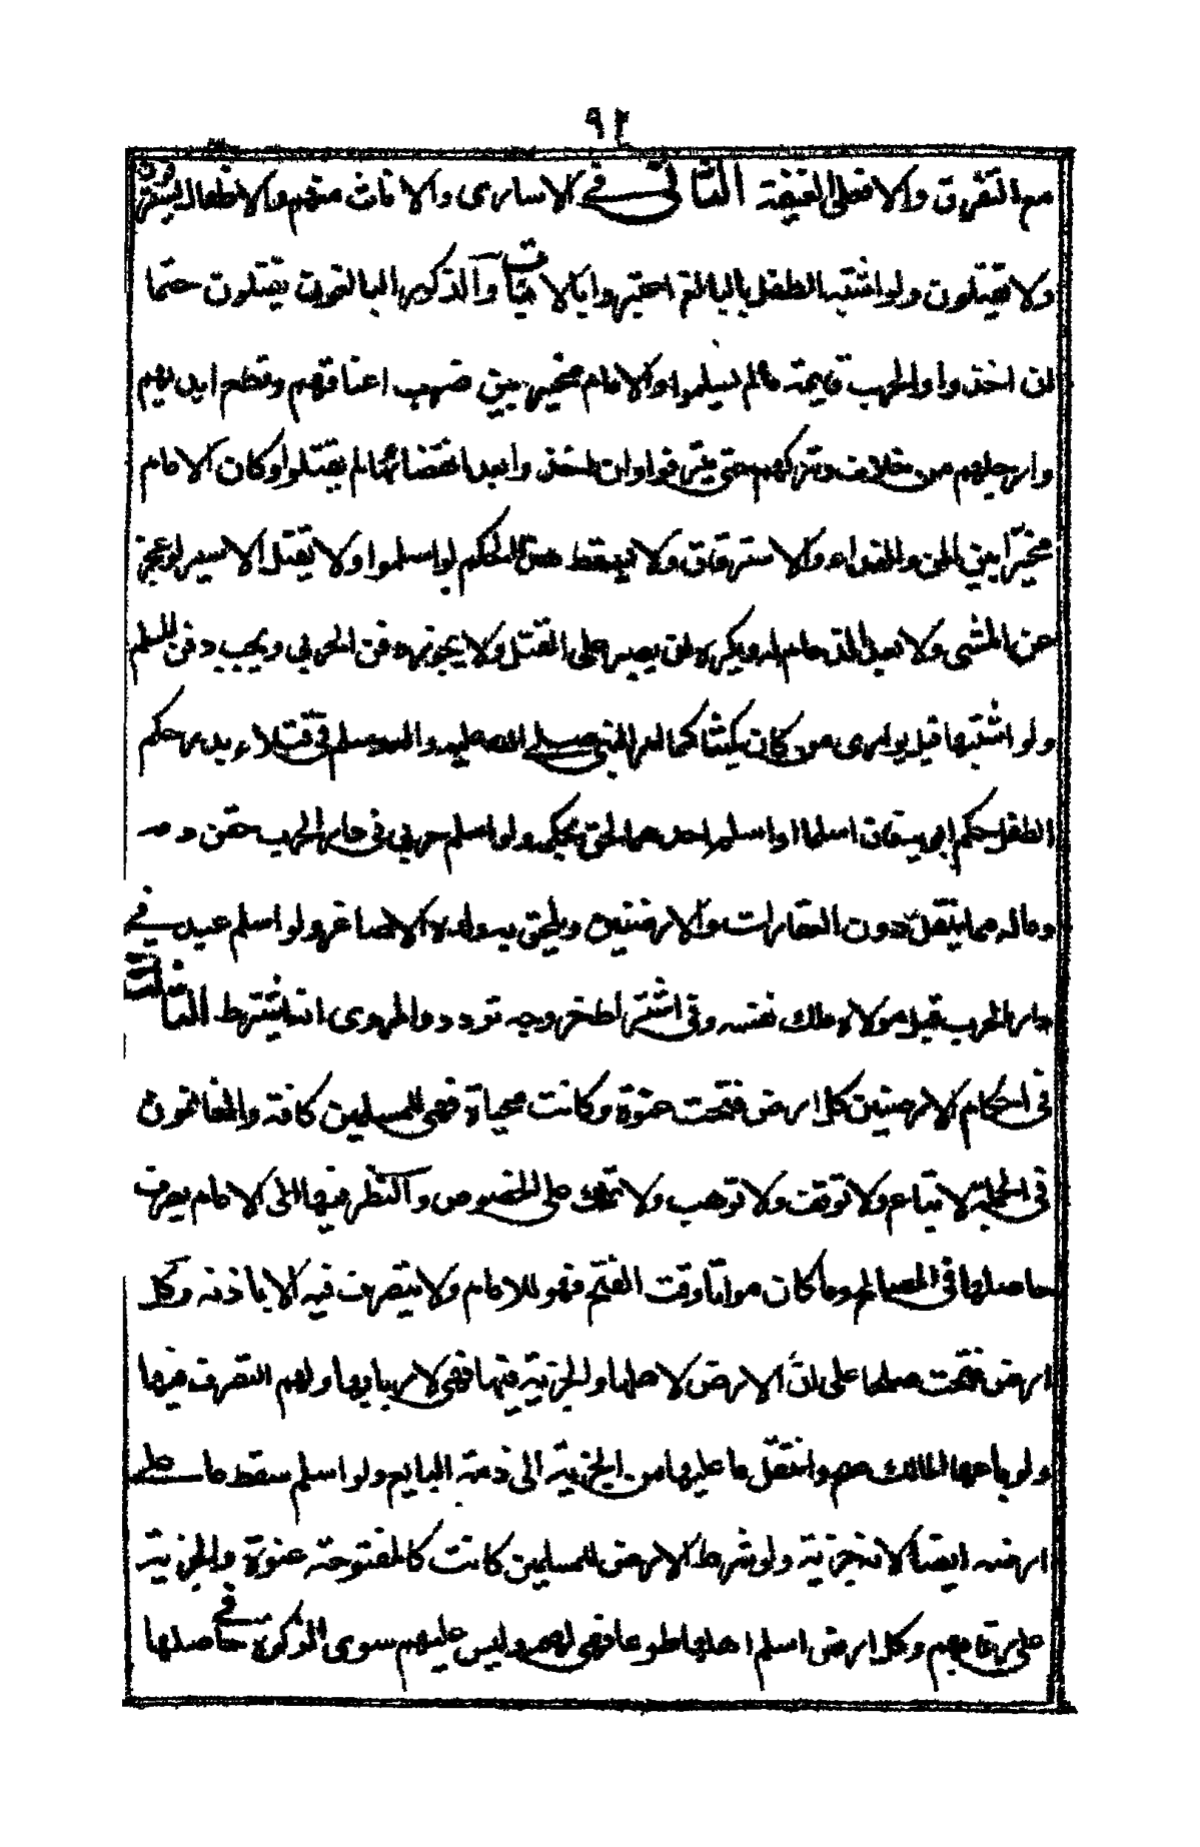 ٩٢
مع التفريق والا فعلى القيمة الثانى فى الاسارى والاناث منهم والاطفال يسترقون
ولا يقتلون ولو اشتبه الطفل بالبالغ اعتبر وا بالانبات والذكور البالغون يقتلون حتما
ان اخذوا والحرب قايمة ما لم يسلموا والامام مخير بين ضرب اعناقهم وقطع ايديهم
وارجلهم من خلاف وتركهم حتى ينزفوا وان اخذوا بعد انقضائها لم يقتلوا وكان الامام
مخيرا بين المن والفداء والاسترقاق ولا يسقط هذا الحكم لو اسلموا ولا يقتل الاسير لو عجز
عن المشى ولا بعد الذمام له ويكره ان يصبر على القتل ولا يجوز دفن الحربي ويجب دفن المسلم
ولو اشتبها قيل يوارى من كان كميشا كما امر النبى صلى الله عليه واله وسلم فى قتلاء بدر حكم
الطفل حكم ابويه فان اسلما او اسلم احدهما لحق بحكمه ولو اسلم حربي فى دار الحرب حقن دمه
وماله مما ينقل دون العقارات والارضين ويلحق به ولده الاصاغر ولو اسلم عبد فى
دار الحرب قبل مولاه ملك نفسه وفى اشتراط خروجه تردد والمروى انه يشترط الثالث
فى احكام الارضين كل ارض فتحت عنوة وكانت محياة فهى للمسلمين كافة والغانمون
فى الجملة لا تباع ولا توقف ولا توهب ولا تملك على الخصوص والنظر فيها الى الامام يصرف
حاصلها فى المصالح وما كان مواتا وقت الفتح فهو للامام ولا يتصرف فيه الا باذنه وكل
ارض فتحت صلحا على ان الارض لاهلها والجزية فيها فهى لاربابها ولهم التصرف فيها
ولو باعها المالك صح وانتقل ما عليها من الجزية الى ذمة البايع ولو اسلم سقط ما على
ارضه ايضا لانه جزية ولو شرط الارض للمسلمين كانت كالمفتوحة عنوة والجزية
على رقابهم وكل ارض اسلم اهلها طوعا فهى لهم وليس عليهم سوى الزكوة فى حاصلها